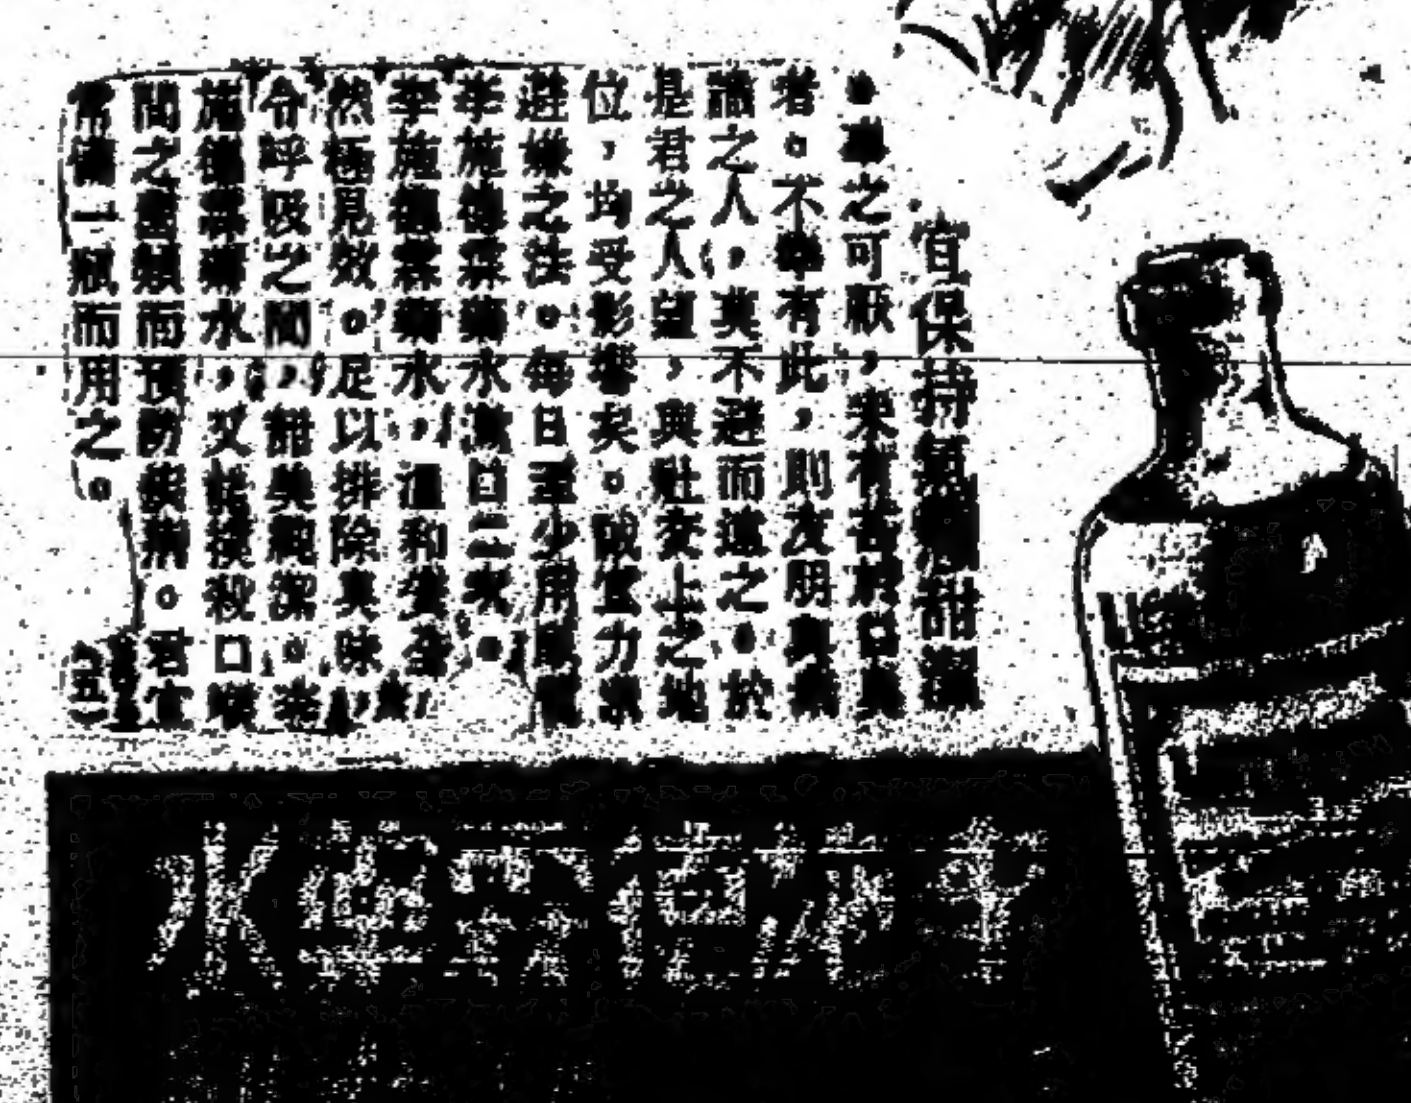 宜保持氣息甜潔
事之可厭，未有甚於口臭
者。不幸有此，則友朋與相
識之人，莫不避而遠之。於
是君之人望，與社交上之地
位，均受影響矣。誠宜力求
避嫌之法。每日至少用
李施德霖藥水漱口二次。
李施德霖藥水，溫和安全，
然極見效。足以排除臭味，
令呼吸之間，甜美純潔。李
施德霖藥水，又能撲殺口喉
間之菌類而預防疾病。君宜
常備一瓶而用之。
（五）
李施德霖藥水